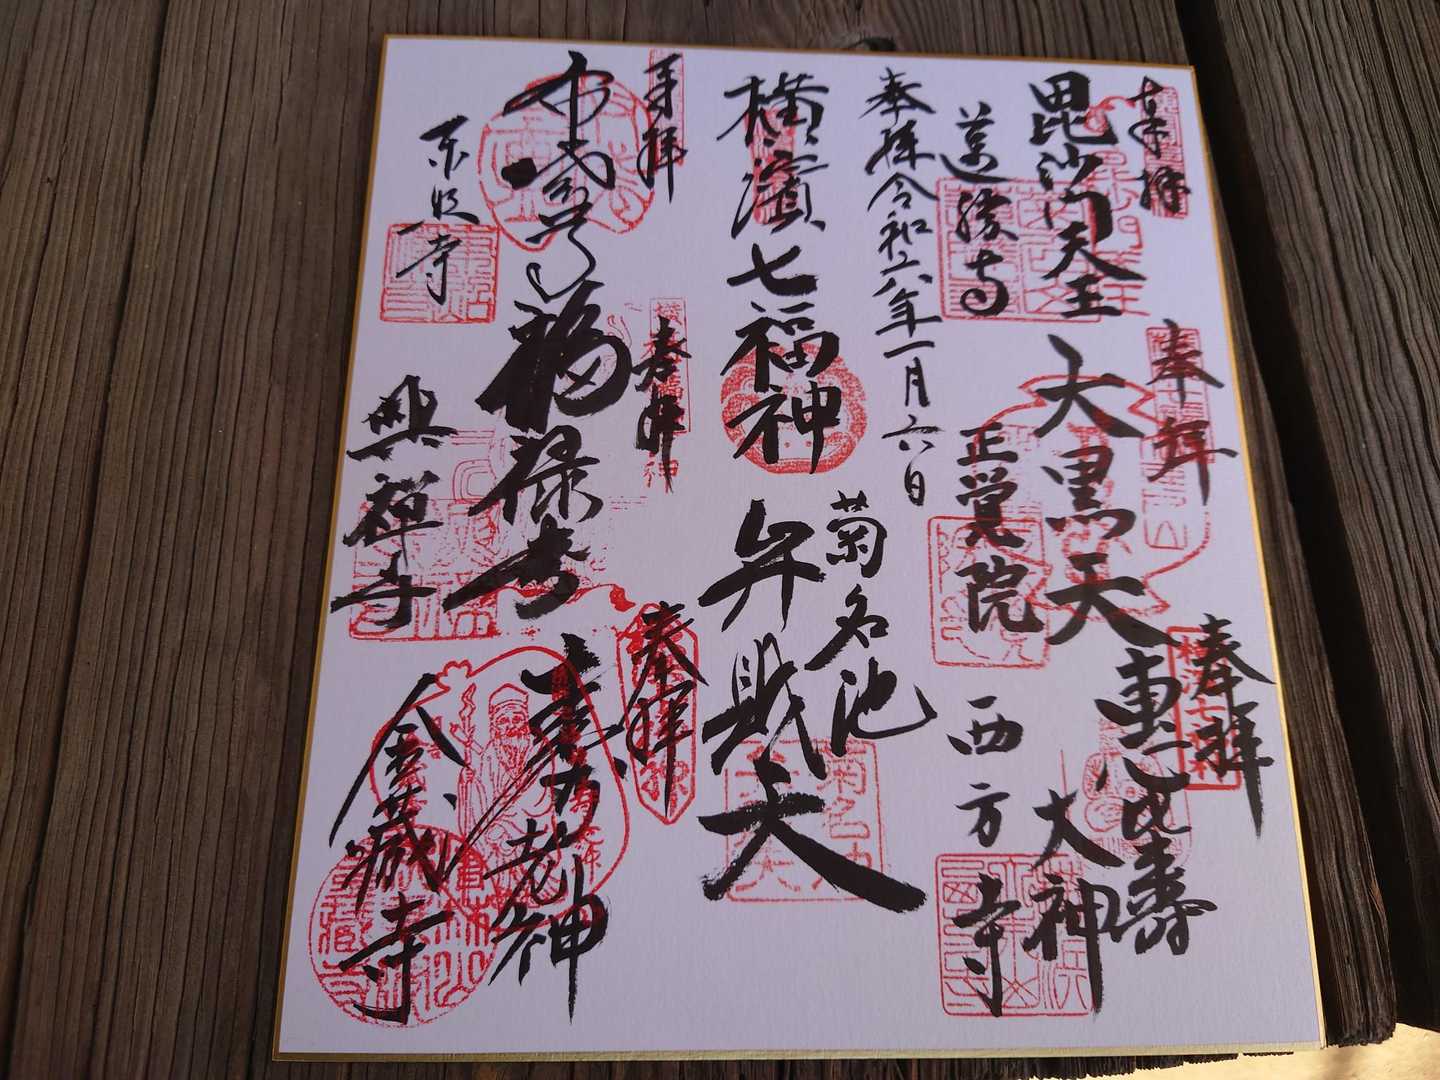 奉拝
毘沙門天王
蓮勝寺
奉拝
大黒天
正覚院
奉拝
恵比寿
大神
西方寺
奉拝令和六年一月六日
横濱七福神
菊名池
弁財天
奉拝
布袋尊
東照寺
奉拝
福禄寿
興禅寺
奉拝
寿老神
金蔵寺